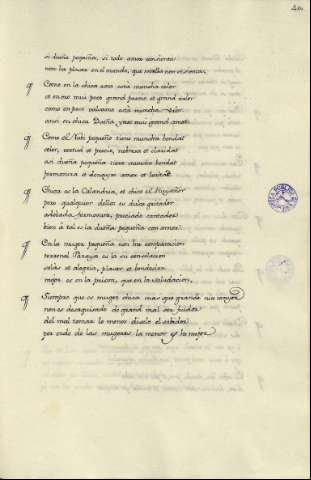 si dueña pequeña, si todo amor consienta
non ha placer en el mundo, que en ella non se sienta.
Como en la chica rosa está mucha color
et en oro mui poco grand precio et grand valor
como en poco balsamo está mucha olor
ansi en chica Dueña, yace mui grand amor.
Como el Robi pequeño tiene mucha bondat
color, vertud et precio, nobleza et claridat
asi dueña pequeña tiene mucha beldat
fermosura et donayre amor et lealtat
Chica es la Calandria, et chico el Ruyseñor
pero qualquier dellos es dulce gritador
adobada fermosura, preciada cantador
bien á tal es la dueña pequeña con amor.
En la muger pequeña non ha comparacion
terrenal Parayso es la su consolacion
solás et alegria, placer et bendicion
mejor es en la prueva, que en la salutacion.
Siempre quis muger chica mas que grande nin mayor
non es desaguisado de grand mal ser fuidor
del mal tomar lo menor diselo el sabidor
por ende de las mugeres la menor es la mejor